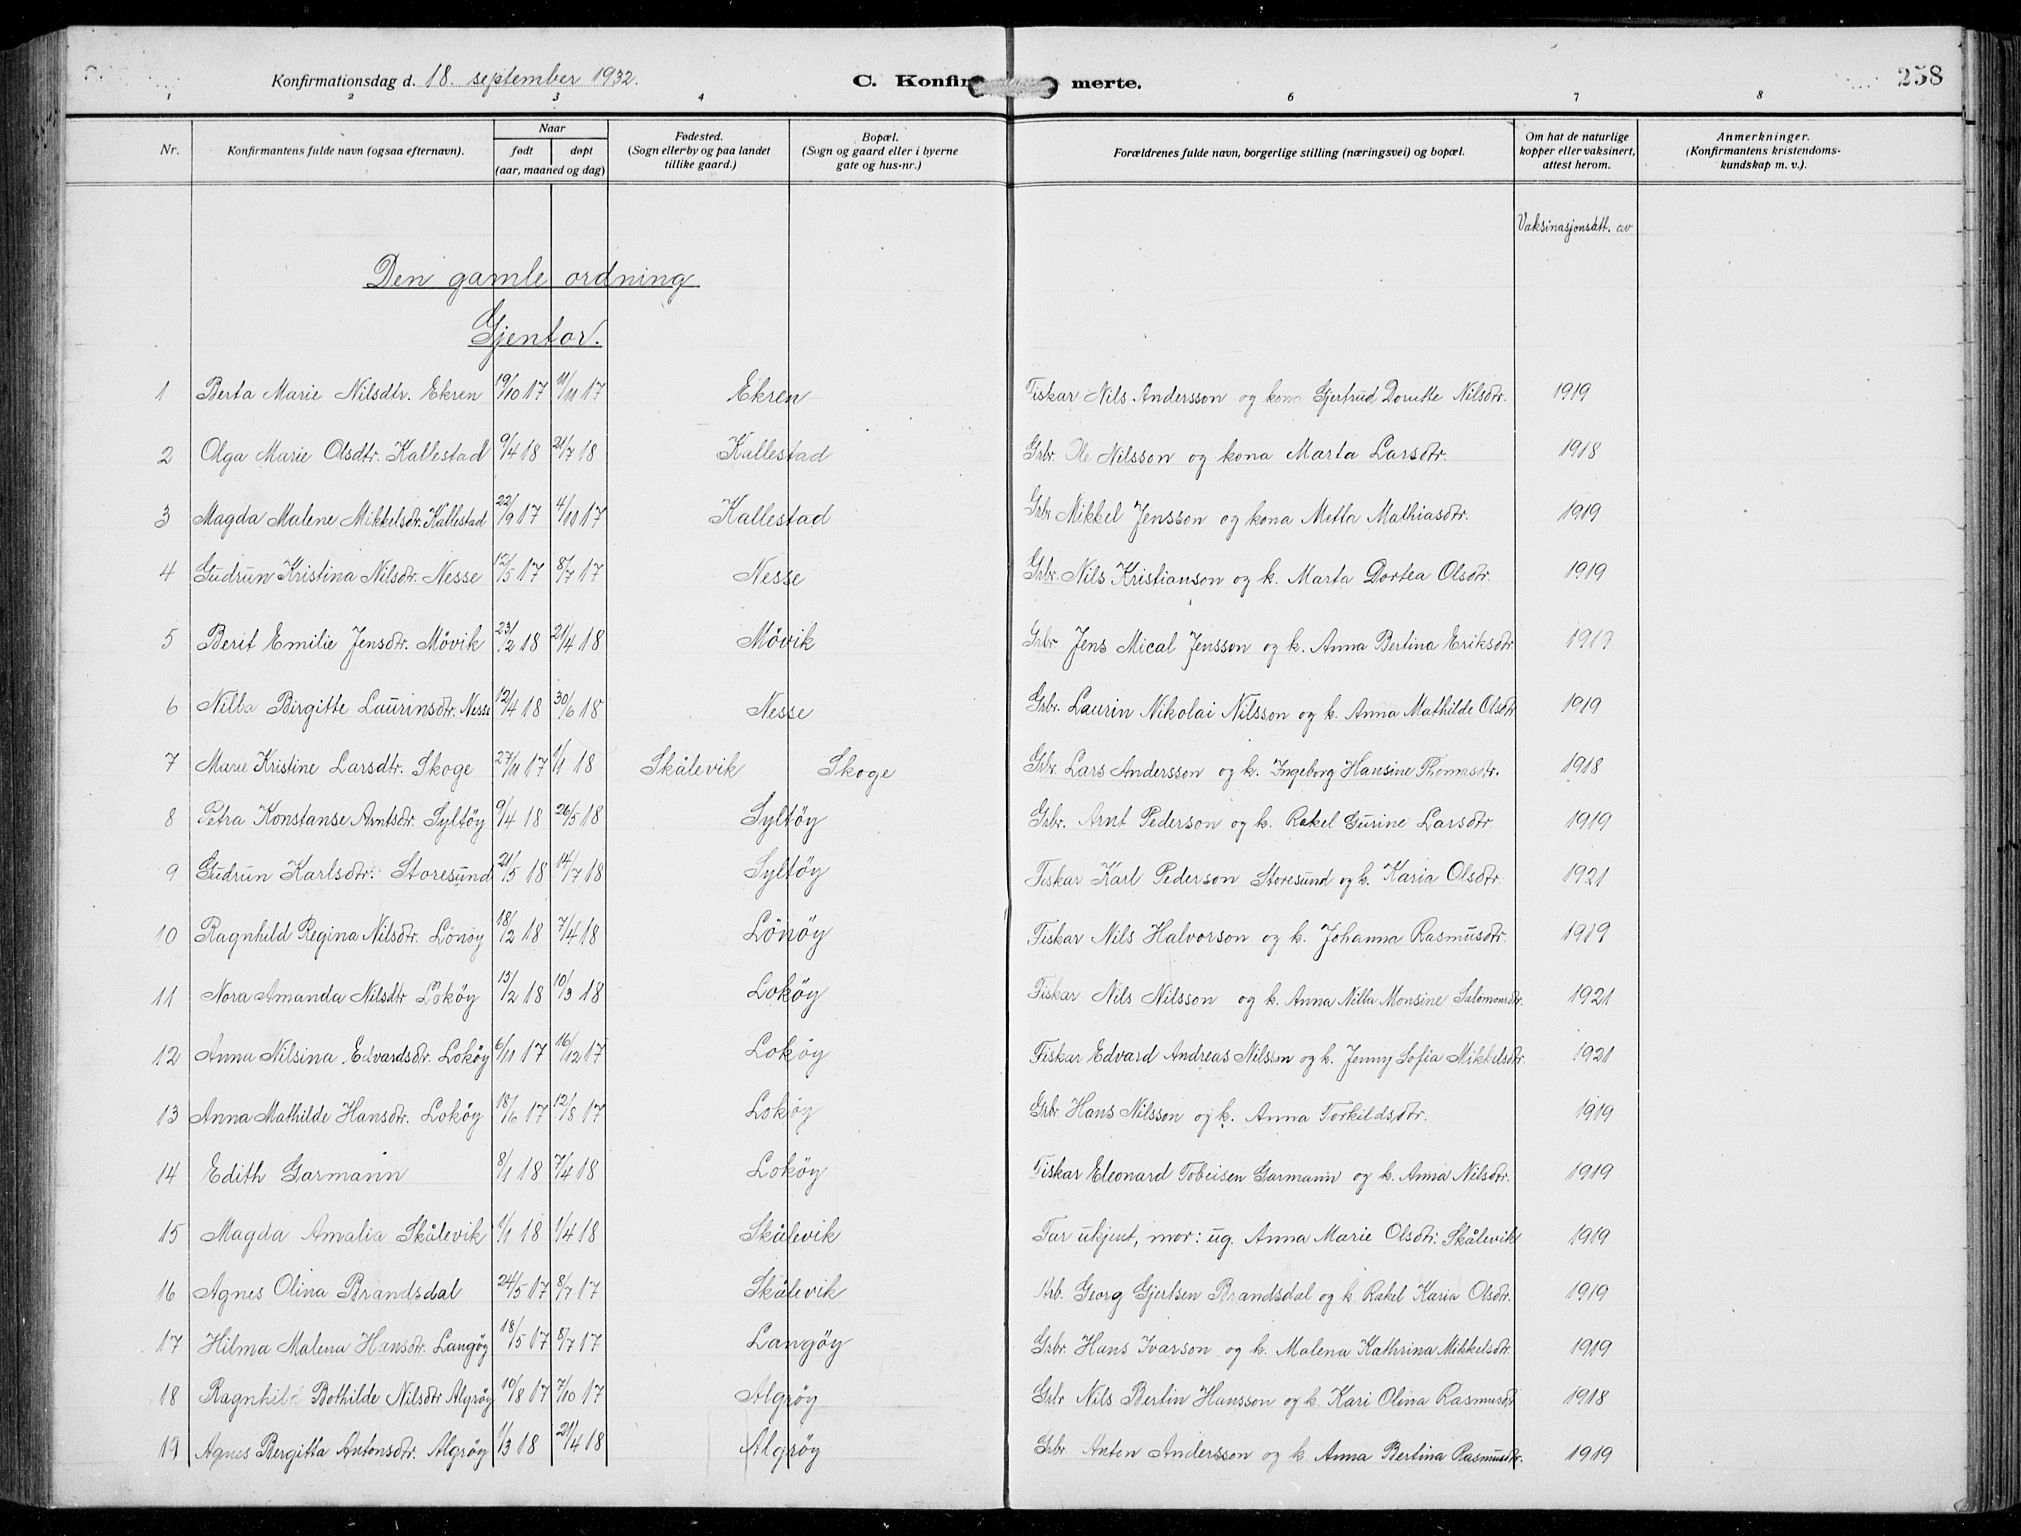 Konfirmationsdag d. 18. september 1932. C. Konfir merte. 258
1 2 3 4 6 7 8
Nr. Konfirmantens fulde navn (ogsaa efternavn). Naar født døpt (aar, maaned og dag) Fødested. (Sogn ellerby og paa landet tillike gaard.) Bopæl. (Sogn og gaard eller i byerne gate og hus-nr.) Forældrenes fulde navn, borgerlige stilling (næringsvei) og bopæl. Om hat de naturlige kopper eller vaksinert, attest herom. Anmerkninger. (Konfirmantens kristendoms- kundskap m. v.).
Vaksinasjonsatt. av
Den gamle ordning
Gjentor.
1 Berta Marie Nilsdtr. Ekren 19/10 17 11/11 17 Ekren Fiskar Nils Andersson og kona Gjertrud Dorutte Nilsdtr. 1919
2 Olga Marie Olsdtr. Kallestad 9/4 18 21/7 18 Kallestad Grbr. Ole Nilsson og kona Marta Larsdtr. 1918
3 Magda Malene Mikkelsdtr. Kallestad 22/9 17 4/10 17 Kallestad Grbr Mikkel Jensson og kona Metta Mathiasdtr. 1919
4 Gudrun Kristina Nilsdtr. Nesse 12/5 17 8/7 17 Nesse Grbr. Nils Kristianson og k. Marta Dortea Olsdtr. 1919
5 Berit Emilie Jensdtr. Mövik 23/2 18 21/4 18 Mövik Grbr Jens Mical Jensson og k. Anna Bertina Eriksdtr 1919
6 Nilla Birgitte Laurinsdtr. Nesse 12/4 18 30/6 18 Nesse Grbr. Laurin Nikolai Nilsson og k. Anna Mathilde Olsdtr 1919
7 Marie Kristine Larsdtr. Skoge 27/11 17 1/1 18 Skålevik Skoge Grbr. Lars Andersson og k. Ingeborg Hansine Thomasdtr. 1918
8 Petra Konstanse Arntsdtr. Syltöy 9/4 18 26/5 18 Syltöy Grbr. Arnt Pederson og k. Rakel Gurine Larsdtr. 1919
9 Gudrun Karlsdtr. Storesund 21/5 18 14/7 18 Syltöy Fiskar Karl Pederson Storesund og k. Karia Olsdtr. 1921
10 Ragnhild Regina Nilsdtr. Lönöy 18/2 18 7/4 18 Lönöy Fiskar Nils Halvorson og k. Johanna Rasmusdtr. 1919
11 Nora Amanda Nilsdtr Lokøy 13/2 18 10/3 18 Lokøy Fiskar Nils Nilsson og k. Anna Nilla Monsine Salomonsdtr. 1921
12 Anna Nilsina Edvardsdtr. Lokøy 6/11 17 16/12 17 Lokøy Fiskar Edvard Andreas Nilsson og k. Jenny Sofia Mikkelsdtr. 1921
13 Anna Mathilde Hansdtr. Lokøy 18/6 17 12/8 17 Lokøy Grbr Hans Nilsson og k. Anna Torkildsdtr. 1919
14 Edith Garmann 8/1 18 7/4 18 Lokøy Fiskar Eleonard Tobeisen Garmann og k. Anna Nilsdtr. 1919
15 Magda Amalia Skålevik 1/1 18 1/4 18 Skålevik Far ukjent, mor: ug. Anna Marie Olsdtr. Skålevik 1919
16 Agnes Olina Brandsdal 24/5 17 8/7 17 Skålevik Arb. Georg Gjertsen Brandsdal og k. Rakel Karia Olsdtr. 1919
17 Hilma Malena Hansdtr. Langöy 18/5 17 8/7 17 Langöy Grbr. Hans Ivarson og k. Malena Kathrina Mikkelsdtr. 1919
18 Ragnhild Bothilde Nilsdtr Algröy 10/8 17 7/10 17 Algröy Grbr Nils Bertin Hansson og k. Kari Olina Rasmusdtr 1918
19 Agnes Bergitta Antonsdtr. Algröy 1/3 18 21/4 18 Algröy Grbr Anton Andersson og k. Anna Bertina Rasmusdtr. 1919